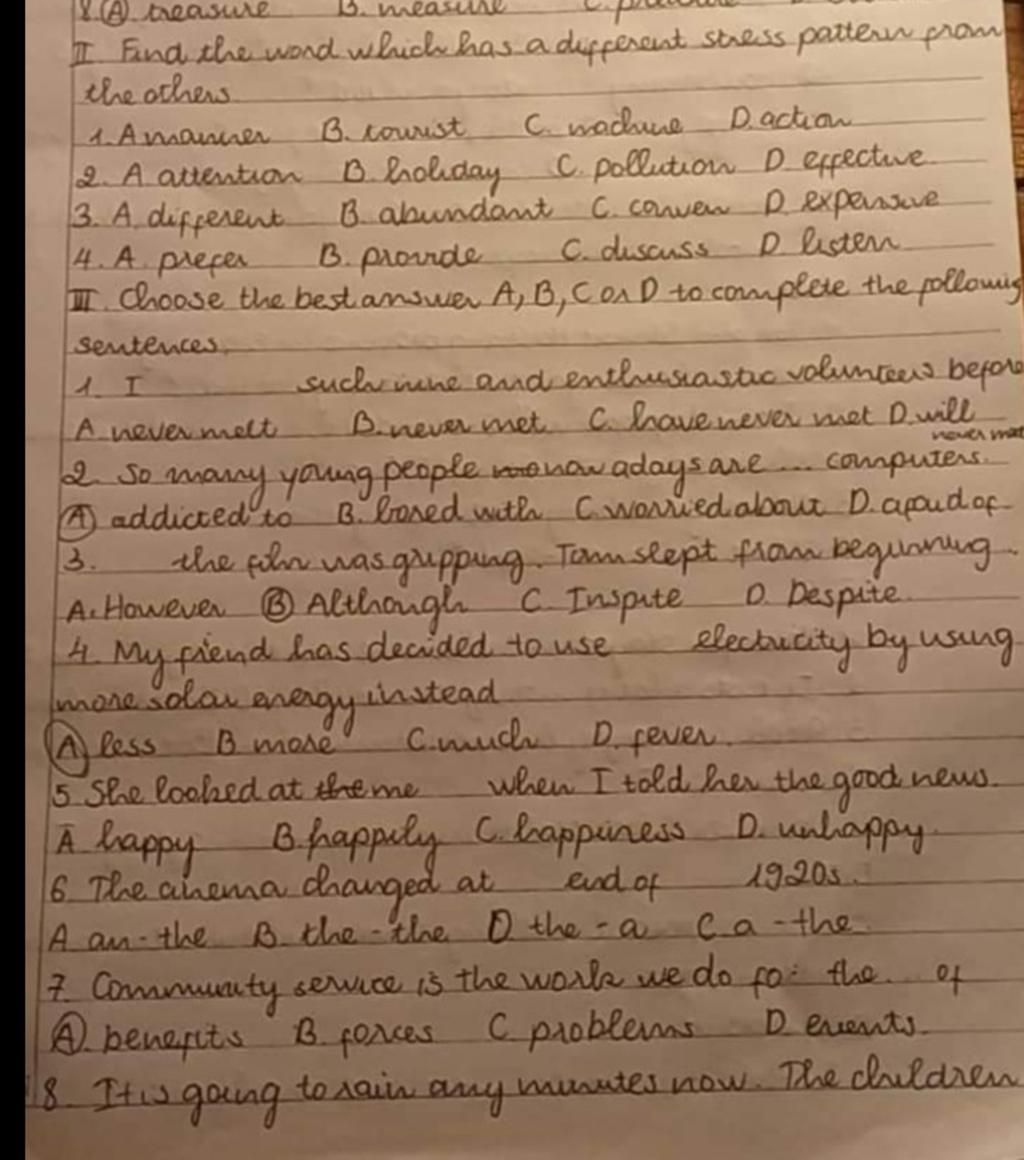 8. A treasure B. measure C.
II Find the word which has a different stress pattern from
the others
1. A manner B. tourist C. machine D. action
2. A attention B. holiday C. pollution D. effective
3. A. different B. abundant C. D. expensive
4. A. prefer B. provide C. discuss D. listen
III. Choose the best answer A, B, C or D to complete the following
sentences.
1. I such and enthusiastic volunteers before
A never melt B. never met C. have never met D. will
never meet
2. So many young people now adays are ... computers.
A addicted to B. bored with C. worried about D. afraid of
3. the film was gripping. Tom slept from beginning.
A. However B Although C. Inspite D. Despite
4. My friend has decided to use electricity by using
more solar energy instead
A less B more C. much D. fewer.
5 She looked at me when I told her the good news.
A happy B. happily C. happiness D. unhappy.
6. The cinema changed at end of 1920s.
A an - the B. the - the D the - a C a - the
7. Community service is the work we do for the of
A. benefits B. forces C problems D events.
8. It is going to rain any minutes now. The children